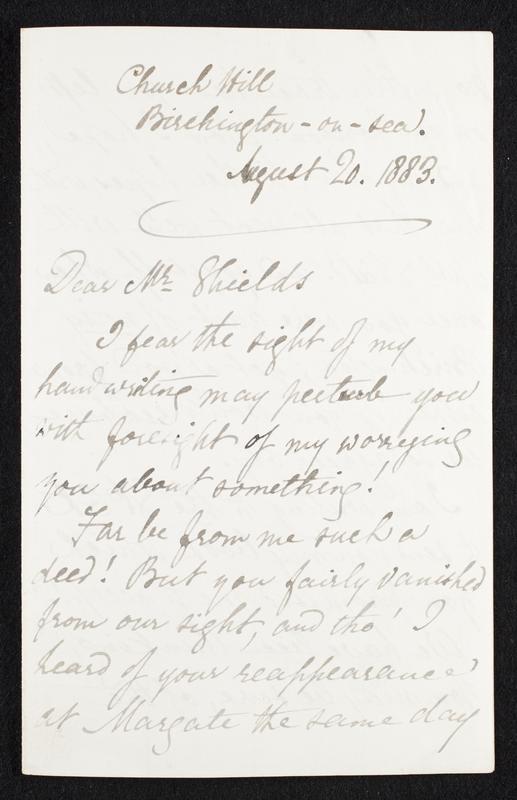 Church Hill
Birchington-on-sea.
August 20. 1883.
Dear Mr Shields
I fear the sight of my
handwriting may perturb you
with foresight of my worrying
you about something!
Far be from me such a
deed! But you fairly vanished
from our sight, and tho' I
heard of your reappearance
at Margate the same day